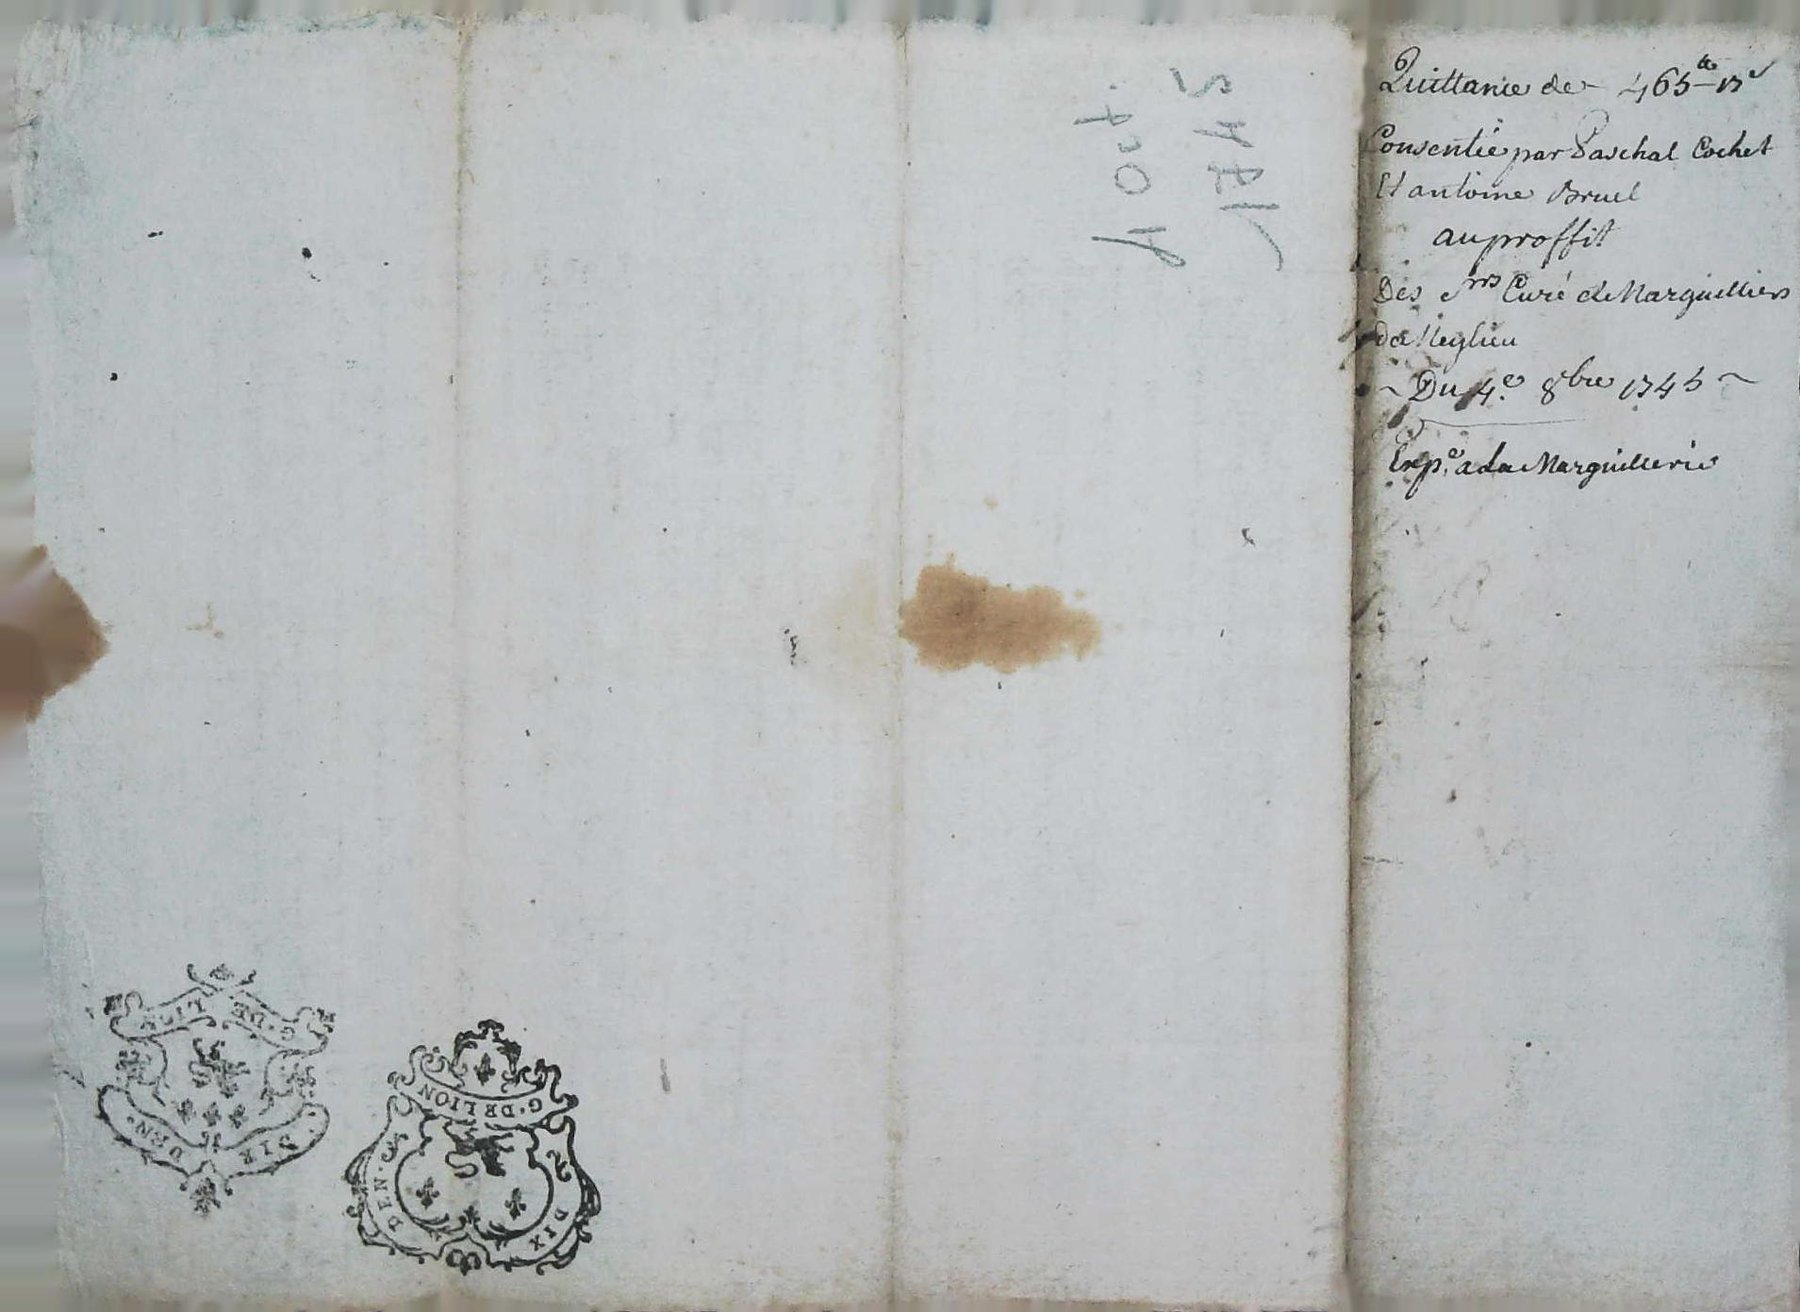 Quittance de 465 tt 13 s
Consentie par Paschal Cochet
Et antoine Bruel
au proffit
Des Srs Curé et Marguilliers
de
~ Du 4e. 8bre 1745 ~
Expe. a la Marguillerie
1745
4 oct.
G. DE LION
DIX DEN.
G. DE LION
DIX DEN.